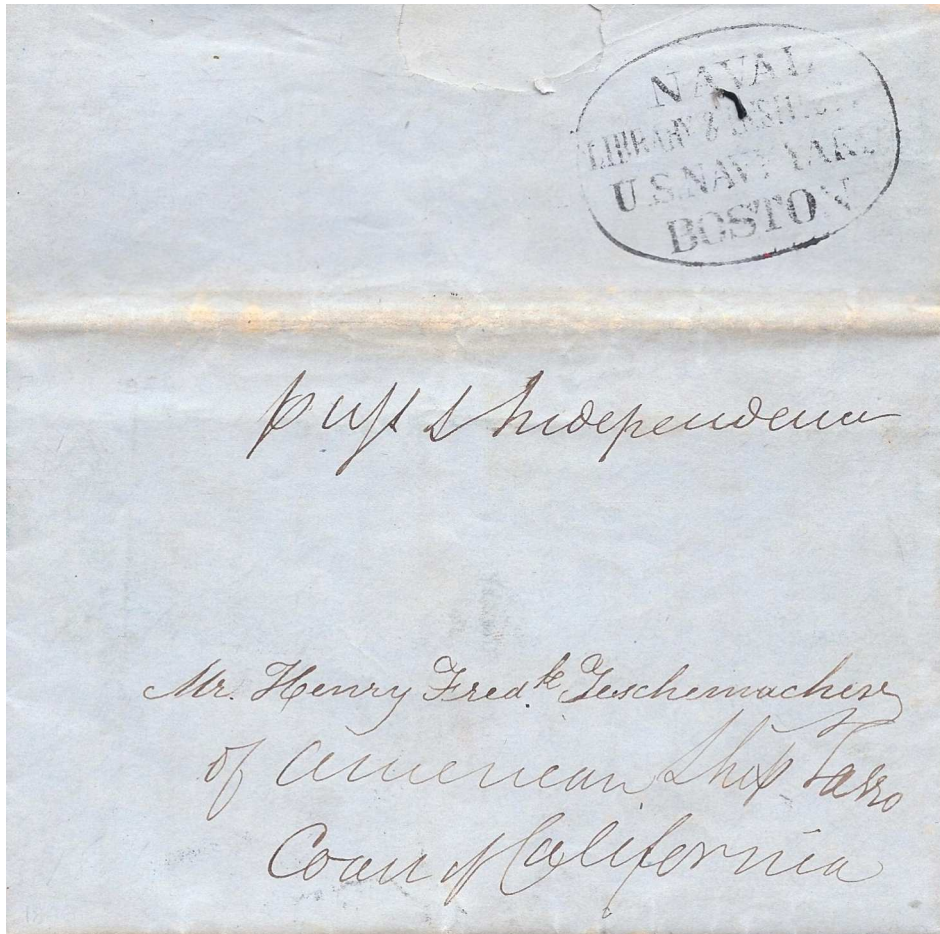 NAVAL
LIBRARY & INSTITUTE
U.S. NAVY YARD
BOSTON
p US S Independence
Mr. Henry Fredk Teschemacher
of American Ship Tasso
Coast of California